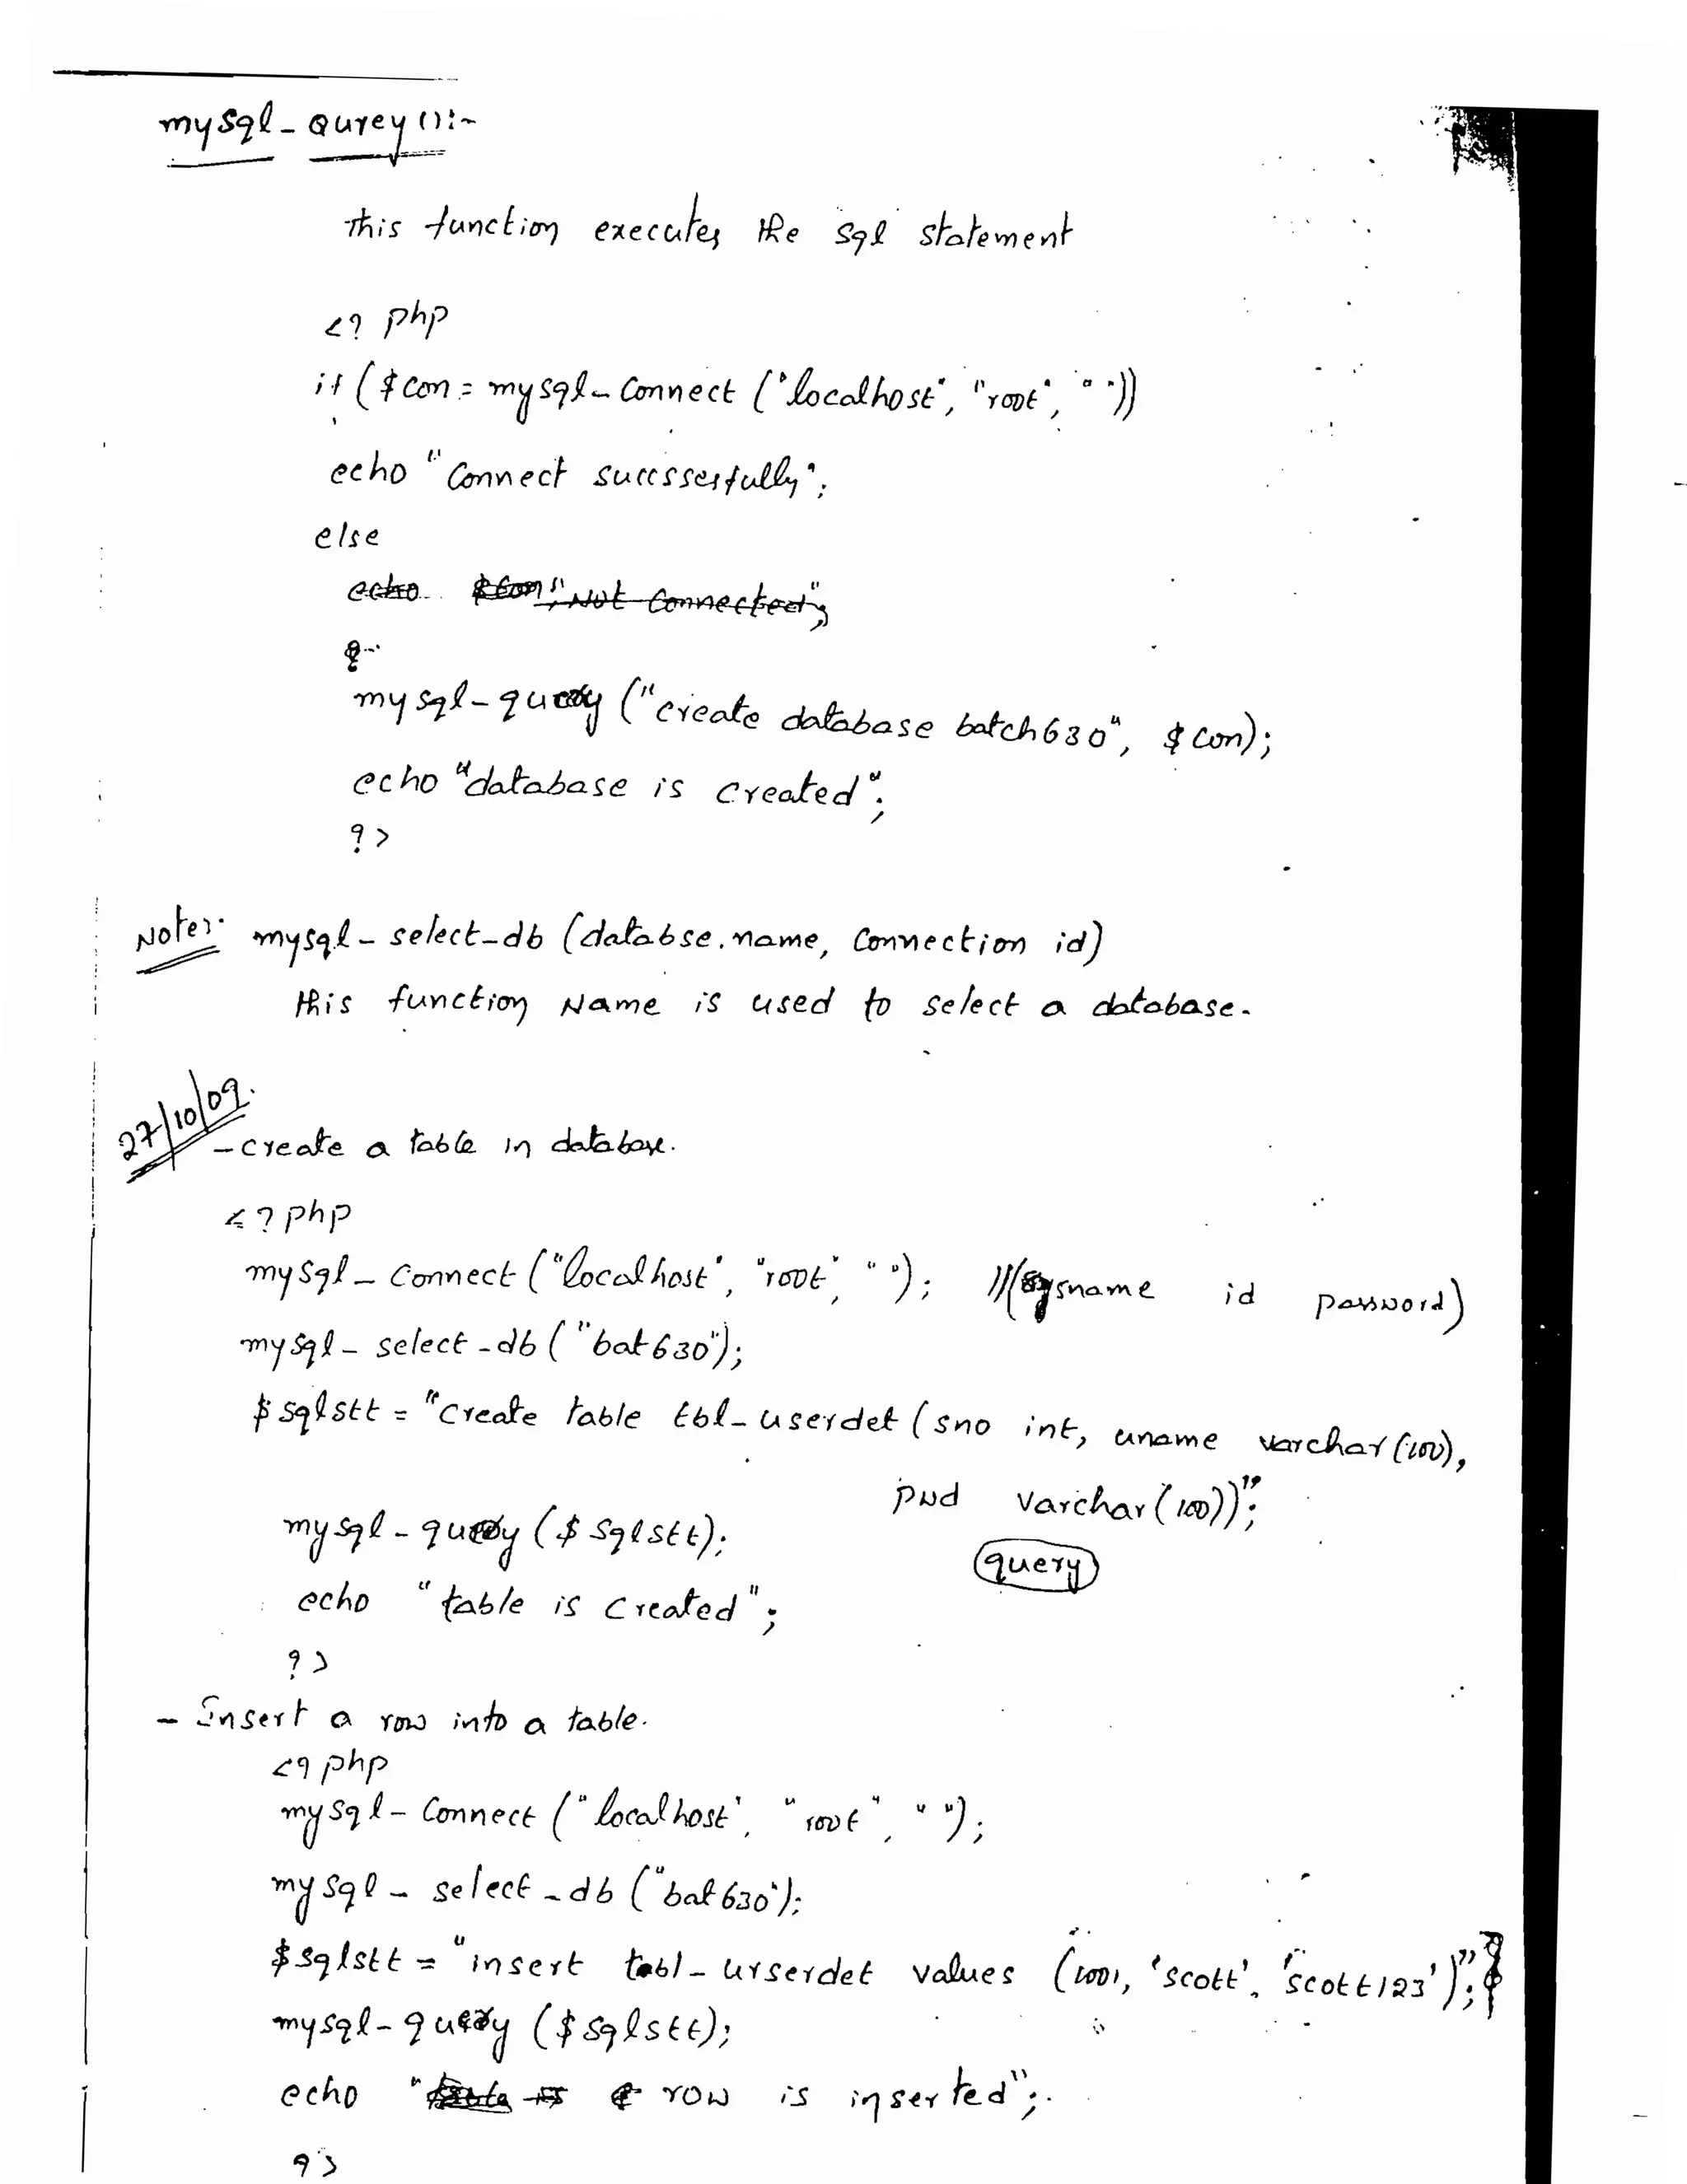 mysql_Qurey():-
This function executes the sql statement
<? php
if ($con = mysql_connect ("localhost", "root", " "))
echo "Connect succssesfully";
else
echo $con "Not Connected";
mysql_query ("create database batch630", $con);
echo "database is created";
?>
Note:- mysql_select_db (databse.name, Connection id)
this function Name is used to select a database.
27/10/09.
- create a table in database.
<? php
mysql_connect ("localhost", "root", " "); //(sysname id password)
mysql_select_db ("bat630");
$sqlstt = "create table tbl_userdet (sno int, uname varchar(100),
pwd varchar(100))";
mysql_query ($sqlstt);
query
echo "table is created";
?>
- Insert a row into a table.
<? php
mysql_connect ("localhost", "root", " ");
mysql_select_db ("bat630");
$sqlstt = "insert tabl_urserdet values (1001, 'scott', 'scott123')";
mysql_query ($sqlstt);
echo " row is inserted";
?>